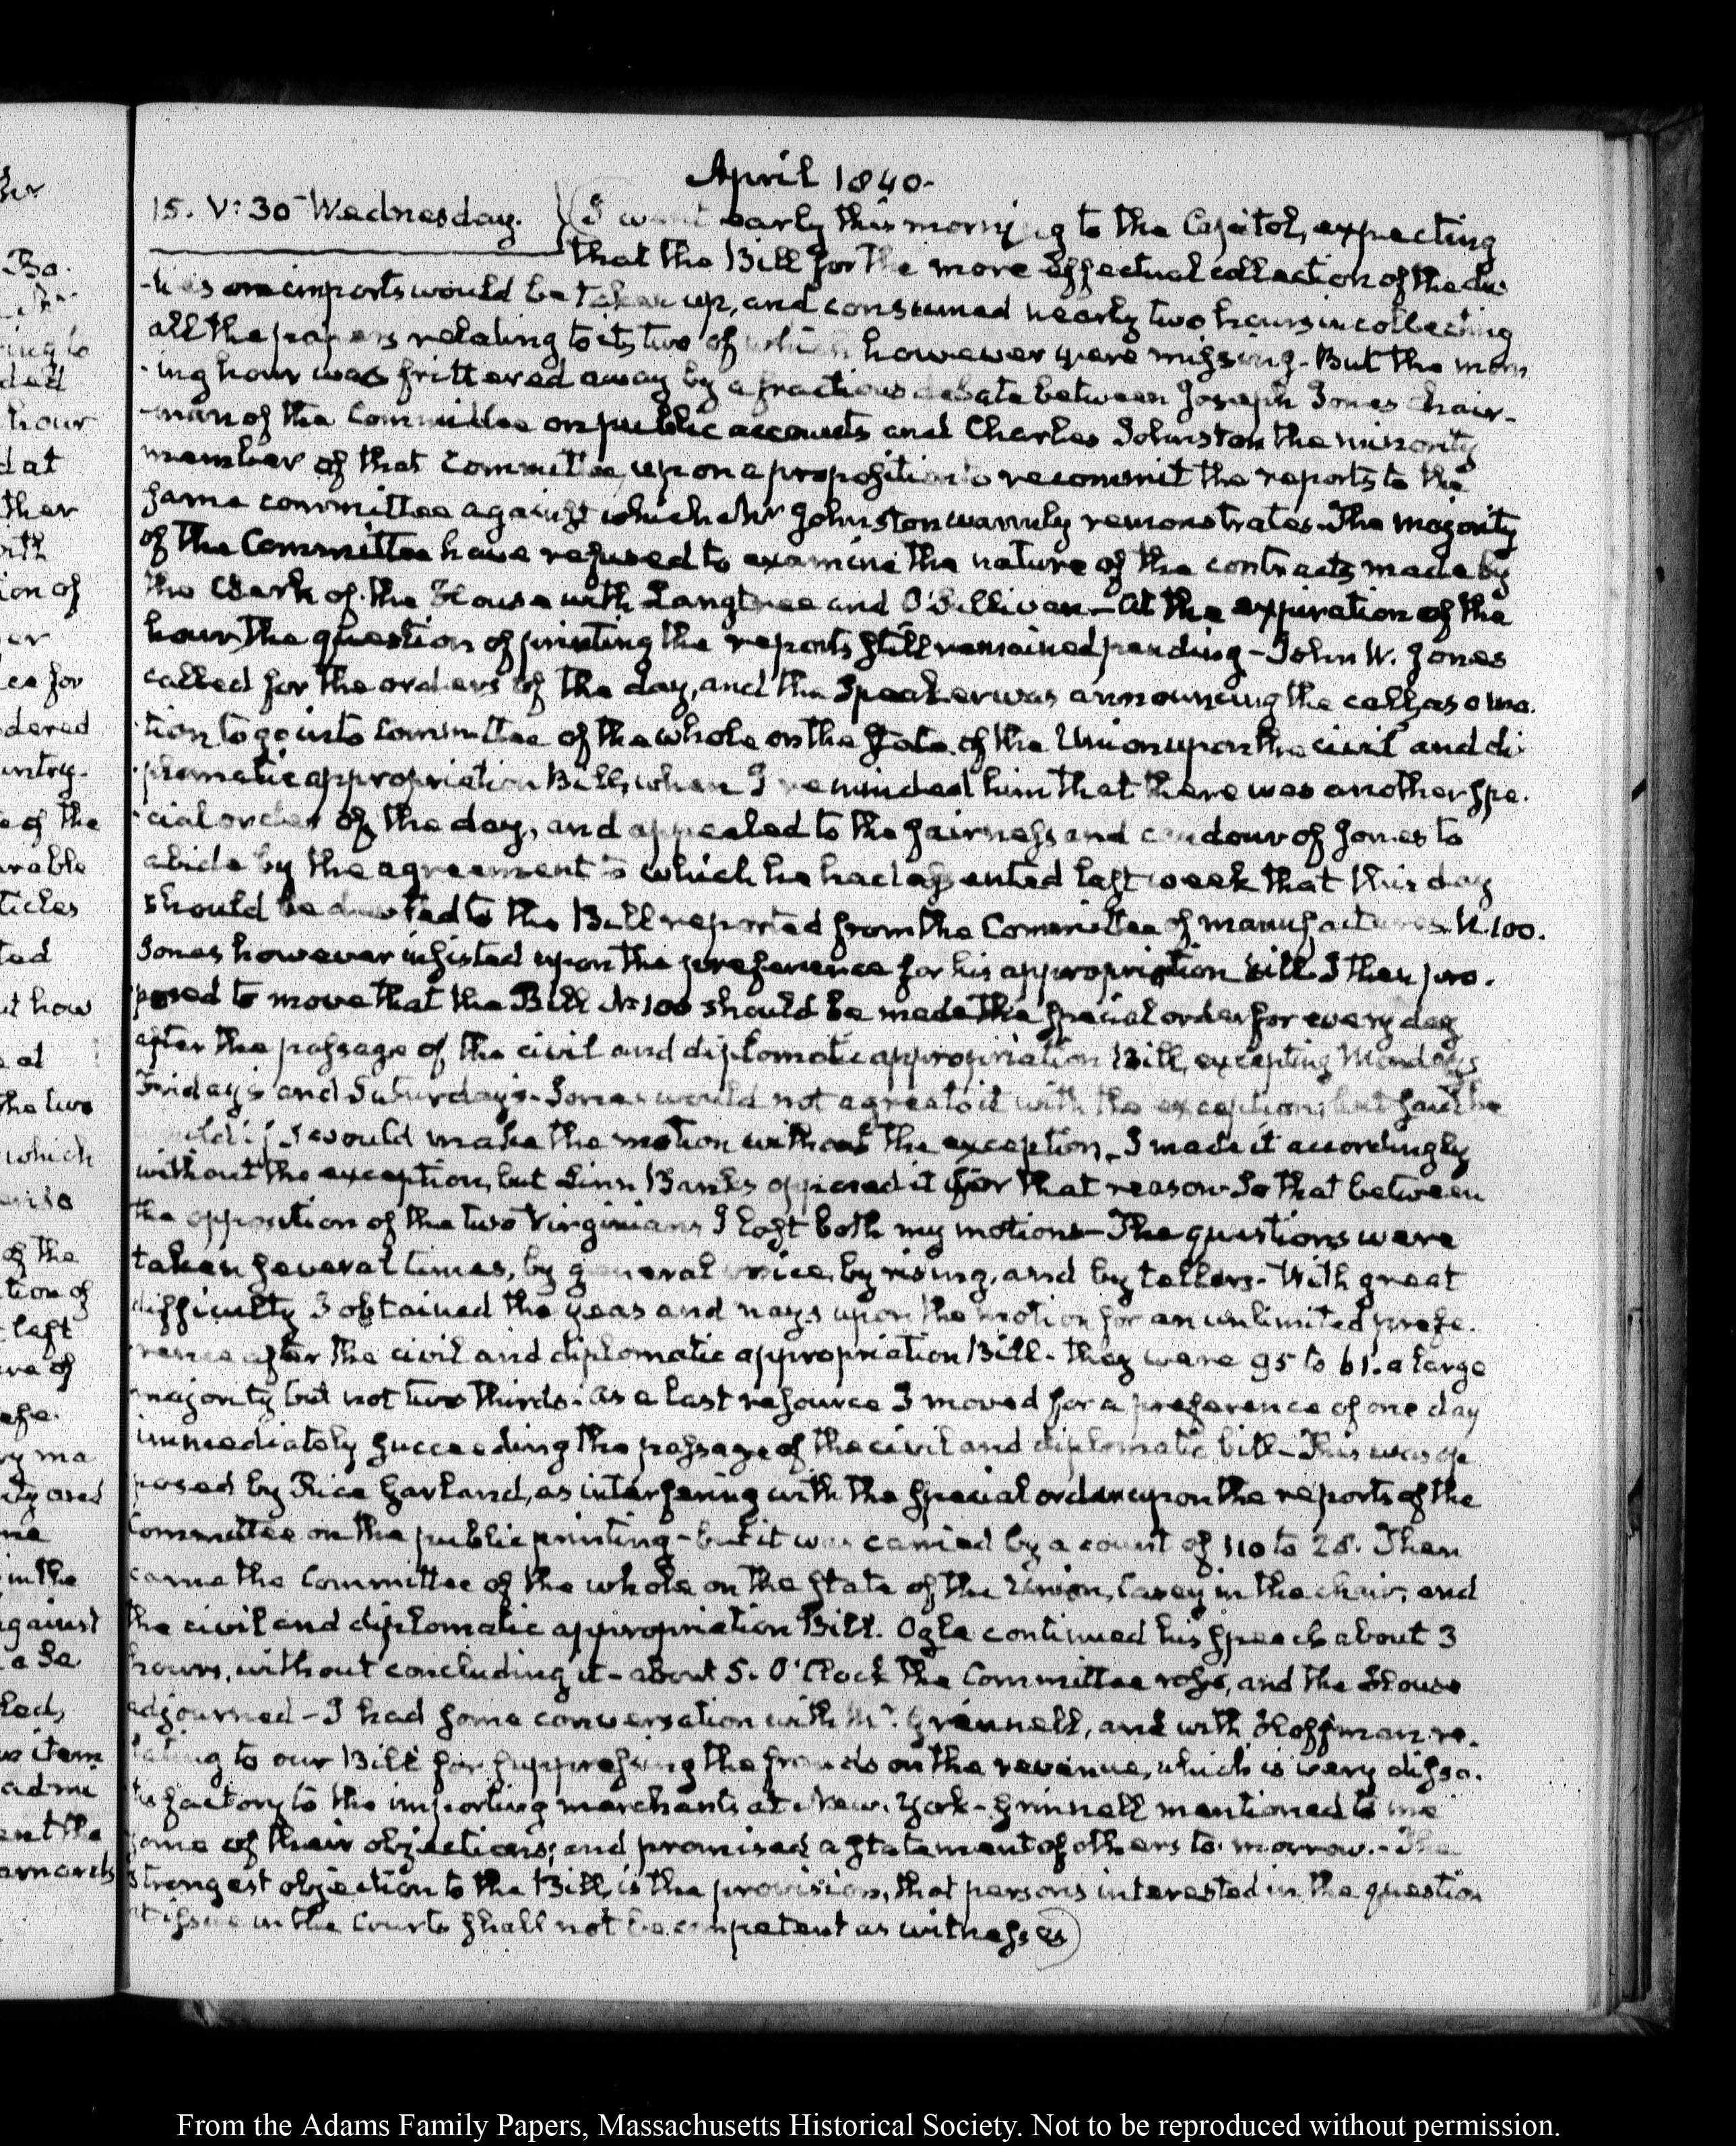 April 1840.
15. V:30 Wednesday. I went early this morning to the Capitol, expecting
that the Bill for the more effectual collection of the du-
-ties on imports would be taken up, and consumed nearly two hours in collecting
all the papers relating to it, two of which however were missing. But the morn
-ing hour was frittered away by a fractious debate between Joseph Jones chair-
-man of the Committee on public accounts and Charles Johnston the minority
member of that Committee, upon a proposition to recommit the reports to the
same committee against which Mr Johnston warmly remonstrates. The majority
of the Committee have refused to examine the nature of the contracts made by
the Clerk of the House with Langtree and O'Sullivan — At the expiration of the
hour, the question of printing the reports still remained pending — John W. Jones
called for the orders of the day, and the Speaker was announcing the call, as a mo-
-tion to go into Committee of the whole on the State of the Union upon the civil and di-
-plomatic appropriation Bill, when I reminded him that there was another spe-
-cial order of the day, and appealed to the fairness and candour of Jones to
abide by the agreement to which he had assented last week that this day
should be devoted to the Bill reported from the Committee of manufactures. N. 100.
Jones however insisted upon the preference for his appropriation bill. I then pro-
posed to move that the Bill N. 100 should be made the special order for every day
after the passage of the civil and diplomatic appropriation Bill, excepting Mondays
Friday's and Saturday's. Jones would not agree to it with the exception; but said he
would if I would make the motion without the exception. I made it accordingly
without the exception, but Linn Banks opposed it for that reason. So that between
the opposition of the two Virginians I lost both my motions — The questions were
taken several times, by general voice, by rising, and by tellers. With great
difficulty I obtained the yeas and nays upon the motion for an unlimited prefe-
rence after the civil and diplomatic appropriation Bill. they were 95 to 61. a large
majority but not two thirds. As a last resource I moved for a preference of one day
immediately succeeding the passage of the civil and diplomatic bill — This was op
posed by Rice Garland, as interfering with the special order upon the reports of the
Committee on the public printing — but it was carried by a count of 110 to 28. Then
came the Committee of the whole on the State of the Union, Casey in the chair, and
the civil and diplomatic appropriation Bill. Ogle continued his speech about 3
hours, without concluding it — about 5. O'Clock the Committee rose, and the House
adjourned — I had some conversation with Mr. Grinnell, and with Hoffman re-
lating to our Bill for suppressing the frauds on the revenue, which is very dissa-
tisfactory to the importing merchants at New-York — Grinnell mentioned to me
some of their objections; and promised a statement of others to-morrow. — The
strongest objection to the Bill, is the provision, that persons interested in the question
at issue in the Courts shall not be competent as witnesses
From the Adams Family Papers, Massachusetts Historical Society. Not to be reproduced without permission.